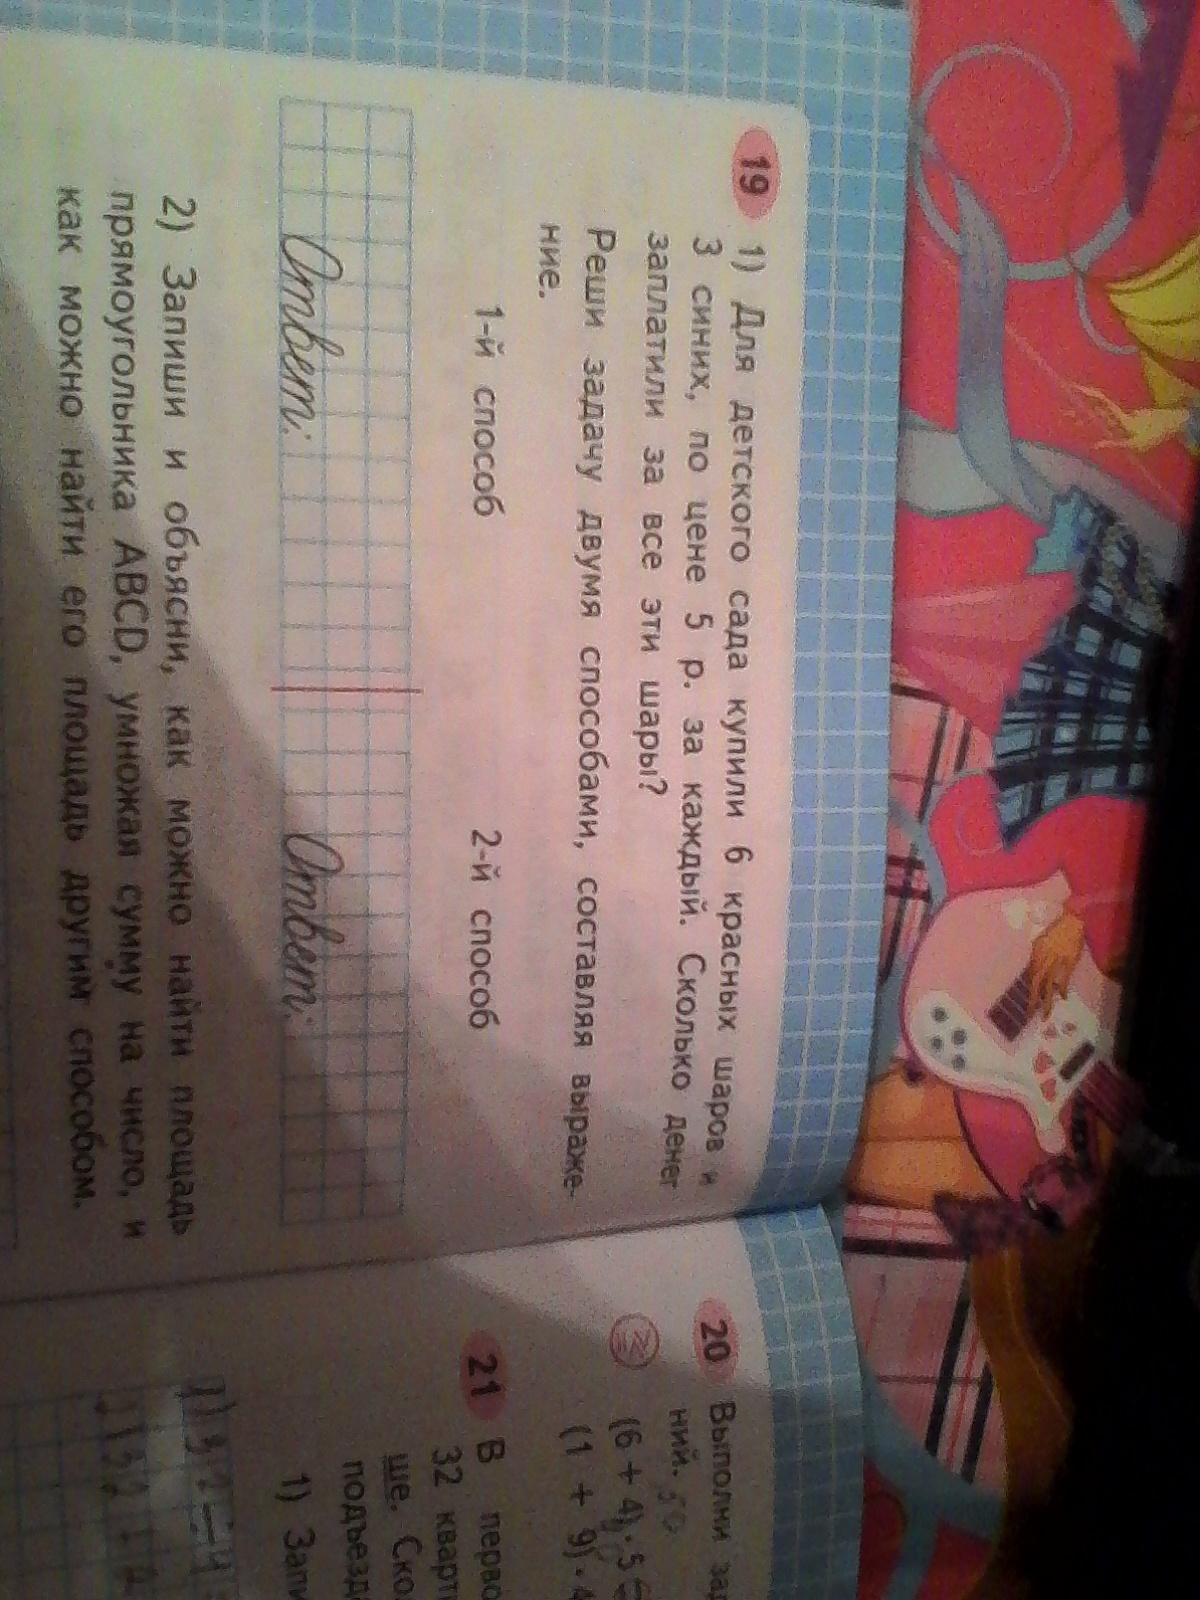 19 1) Для детского сада купили 6 красных шаров и
3 синих, по цене 5 р. за каждый. Сколько денег
заплатили за все эти шары?
Реши задачу двумя способами, составляя выраже-
ние.
1-й способ 2-й способ
Ответ: Ответ:
2) Запиши и объясни, как можно найти площадь
прямоугольника ABCD, умножая сумму на число, и
как можно найти его площадь другим способом.
20 Выполни
ний. 50
(6 + 4) · 5
(1 + 9) ·
21 В
32
ше.
1)